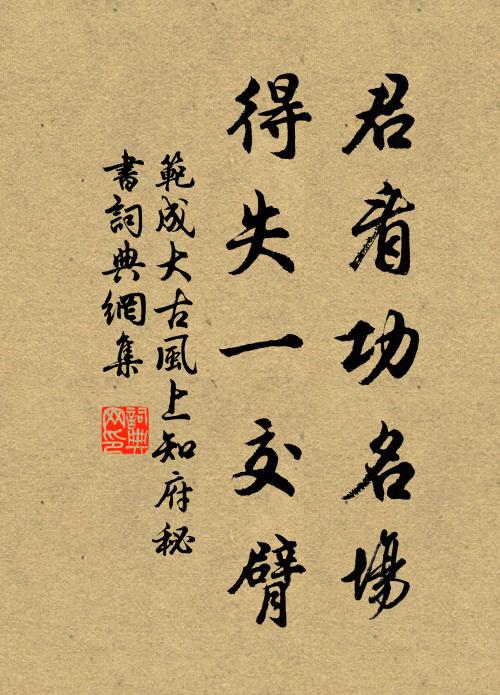 君看功名場
得失一交臂
範成大古風上知府秘
書詞典網集
詞典
网印